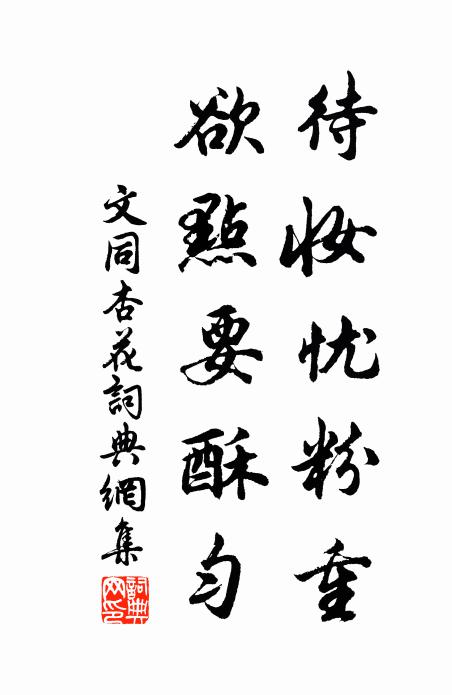 待妆忧粉重
欲點要酥匀
文同杏花詞典網集
詞典网印